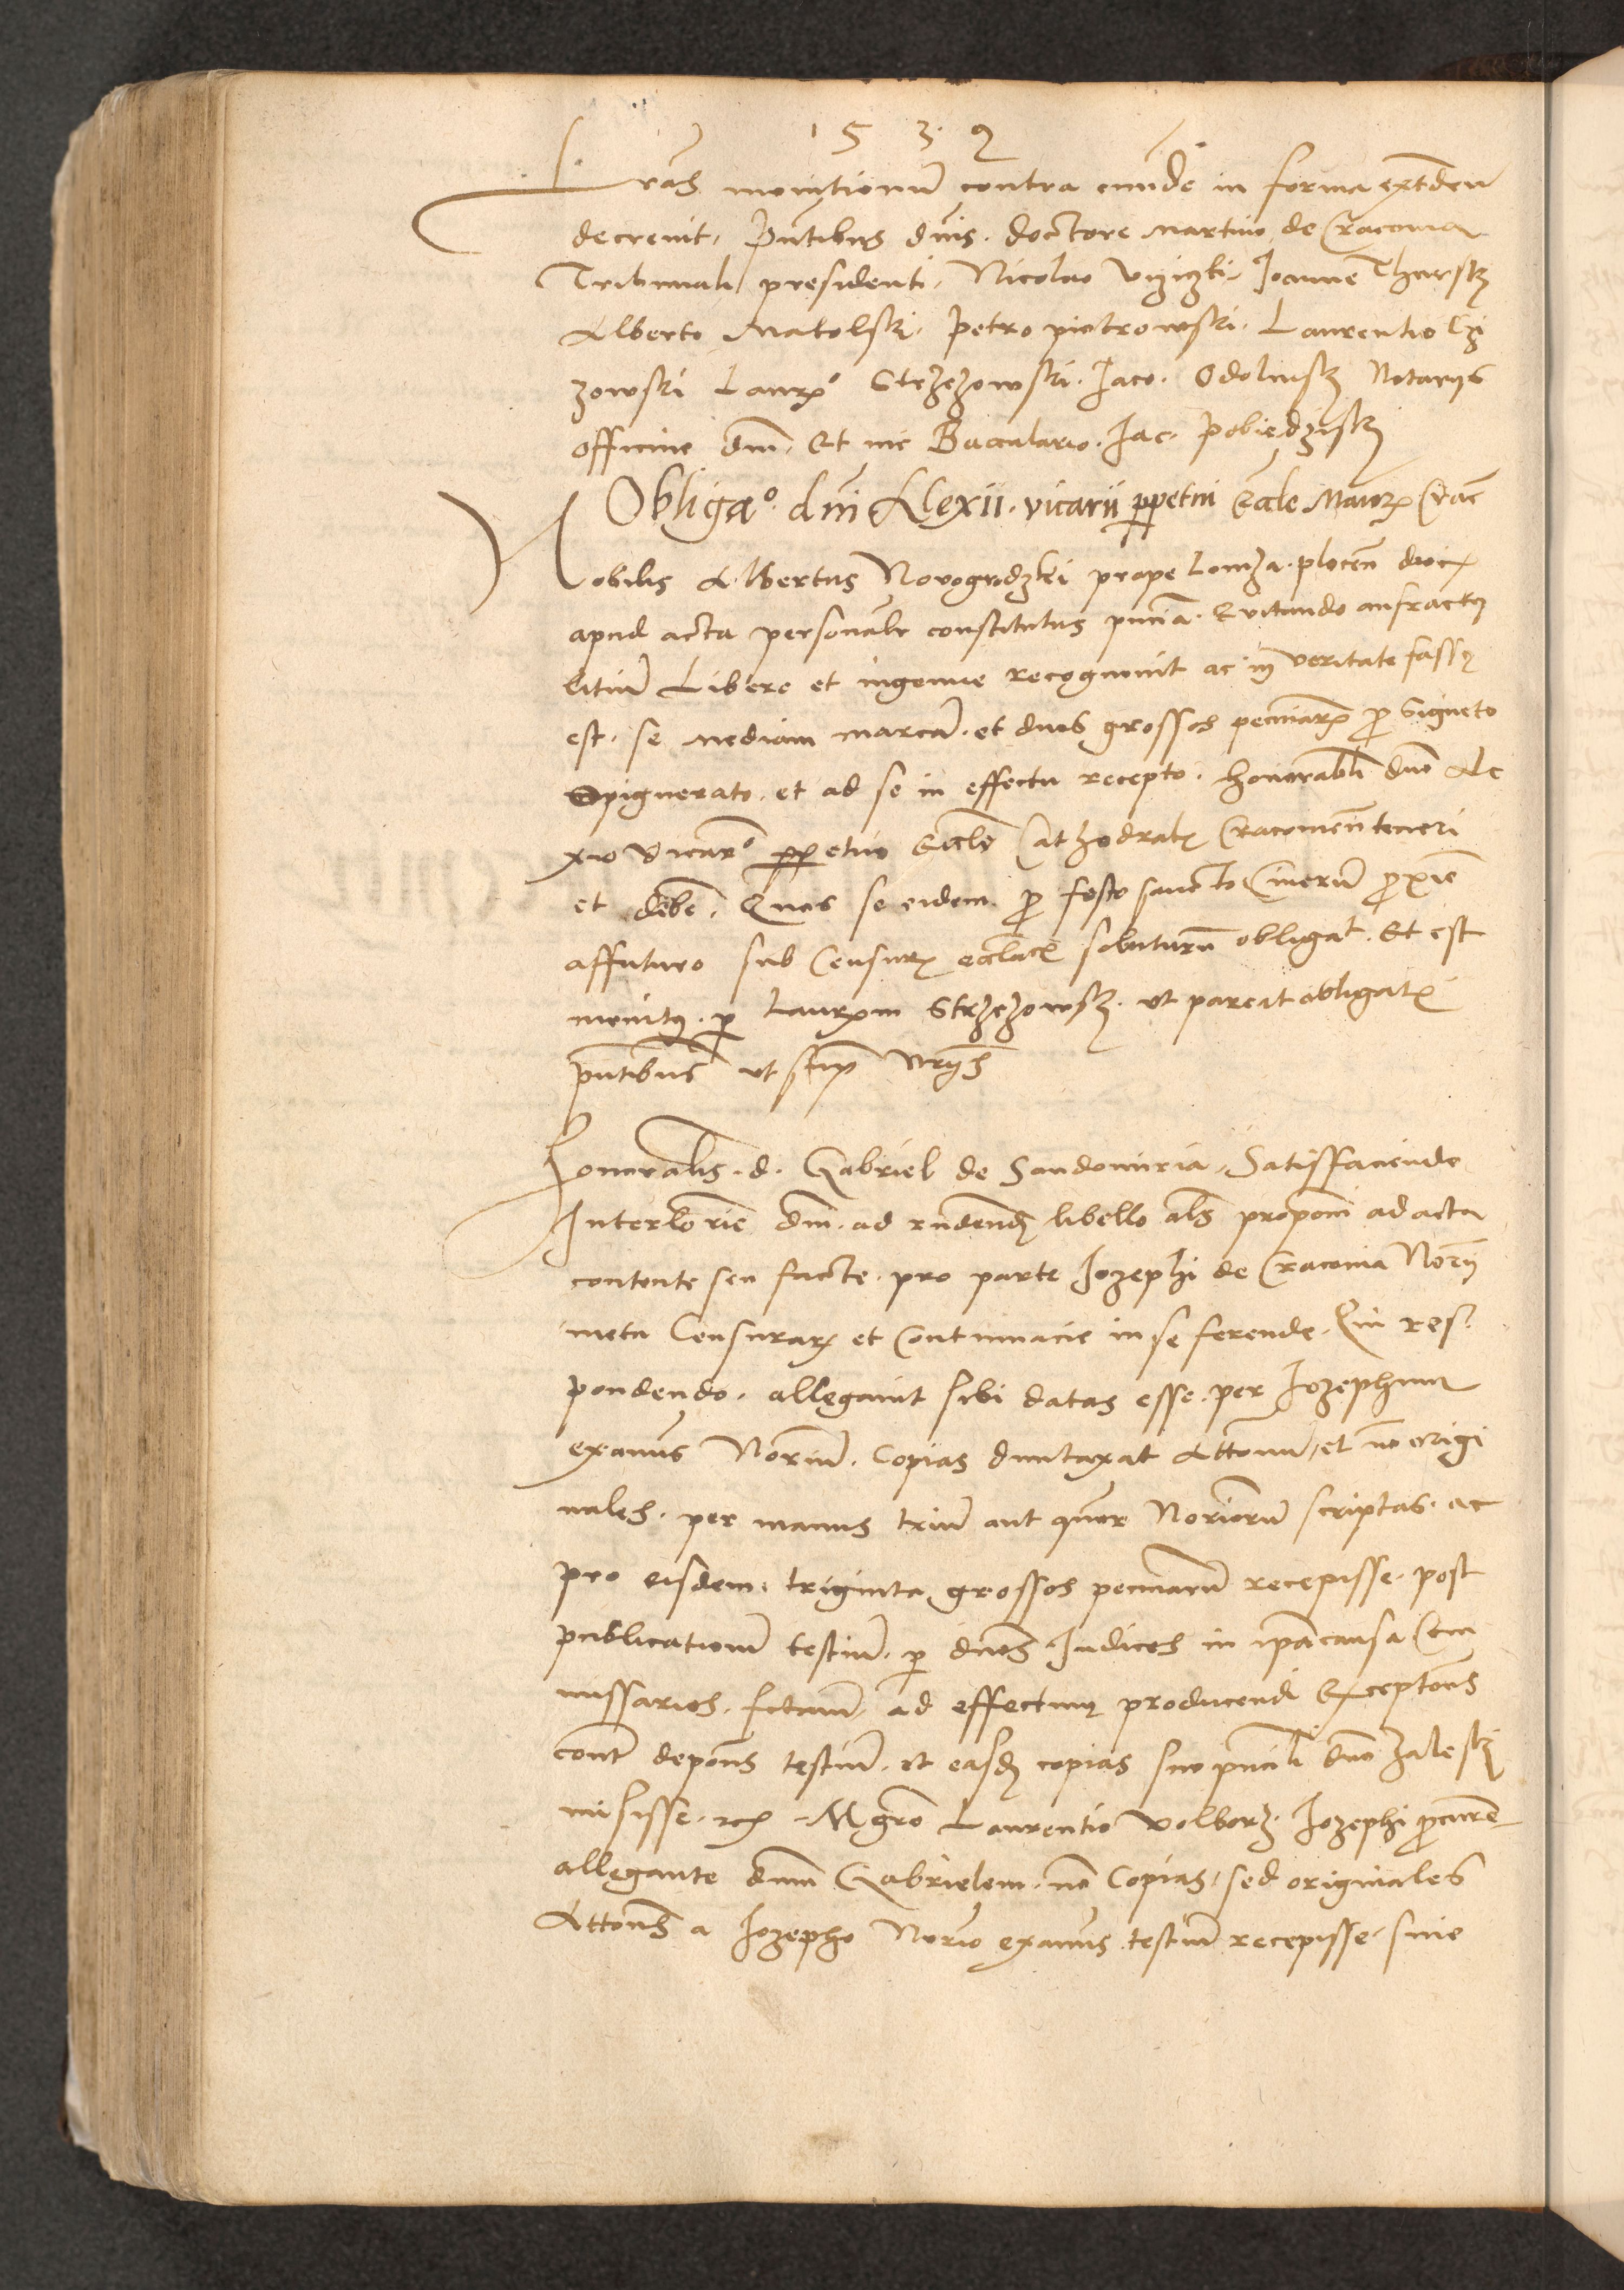 1532
Lras monitionu contra eunde in forma extenden
decrevit. Pntibus dnis. doctore Martino de Cracovia
Tribunali presidenti. Nicolao Uyiczki. Joanne Tharsky
Alberto Makolski. Petro piotrowski. Laurentio Czi
zowski Laurº Strzezowski. Jaco. Odolinsky Notarijs
Officine dm. Et me Baccalario. Jac. Pobiedzisky
Obligaº. dni Alexii. vicarii ppetui Eccle Maiorꝭ Crac
Nobilis Albertus Novogrodzki prope Lomza. plocen dioc
apud acta personalr constitutus pncia. Evitando anfractus
litiu Libere et ingenue recognovit ac in veritate fassus
est. se mediam marca. et duos grossos pecuniarꝭ p Signeto
Opignerato. et ad se in effectu recepto. honorabli dno Ale
xio Vicarº ppetuo Eccle Cathedralꝭ Cracovien teneri
et debe. Quas se eidem p festo sancto Cineru proxie
affuturo sub Censurꝭ ecclacꝭ soluturu obligat. Et est
monitus. p Laurm Strzezowsky. ut pareat obligatꝭ
pntibus ut supra nrijs
Honorabls. d. Gabriel de Sandomiria. Satisfaciendo
Interlorie dm. ad rndendꝭ libello als propom ad acta
contente seu facte. pro parte Jozephi de Cracovia Norij
metu Censurarꝭ et Contumacie in se ferende. Qui res
pondendo. allegavit sibi datas esse. per Jozephum
examis Noriu. Copias duntaxat Attonu. et no origi
nales. per manus triu aut quor Norioru scriptas. ac
pro eisdem. triginta grossos pecuniaru recepisse. post
publicationu testiu. p dnos Judices in ipa causa Com
missarios. fctam. ad effectum producendi Exceptons
contr depons testiu. et easdꝭ copias suo pncili dno Zalesky
misisse. Mgro Laurentio Volborz. Jozephi pcure
allegante dnm Gabrielem. no Copias. sed originales
Attons a Jozepho Norio examis testiu recepisse. sine